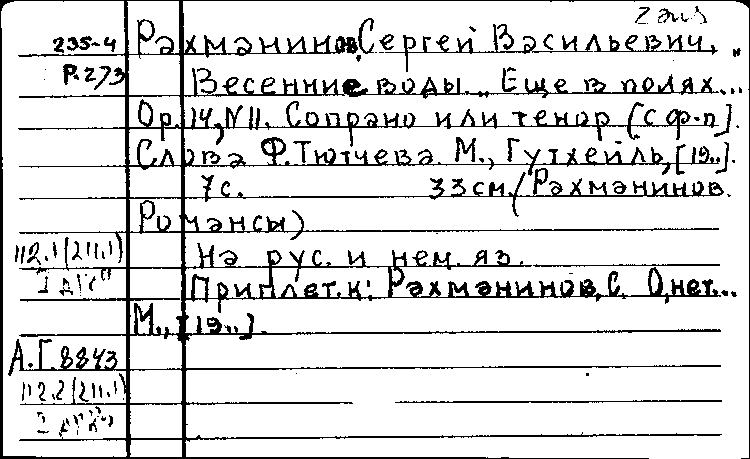 2 экз
235-4 Рахманинов, Сергей Васильевич.
Р.273 Весенние воды. „Еще в полях..."
Ор.14, N11. Сопрано или тенор (с ф-п).
Слова Ф.Тютчева. М., Гутхейль, [19..].
7с. 33см. (Рахманинов.
Романсы)
112.1(211.1) На рус. и нем. яз.
Приплет.к: Рахманинов, С. О, нет...
М., [19..].
А.Г.8843
112.2(211.1)